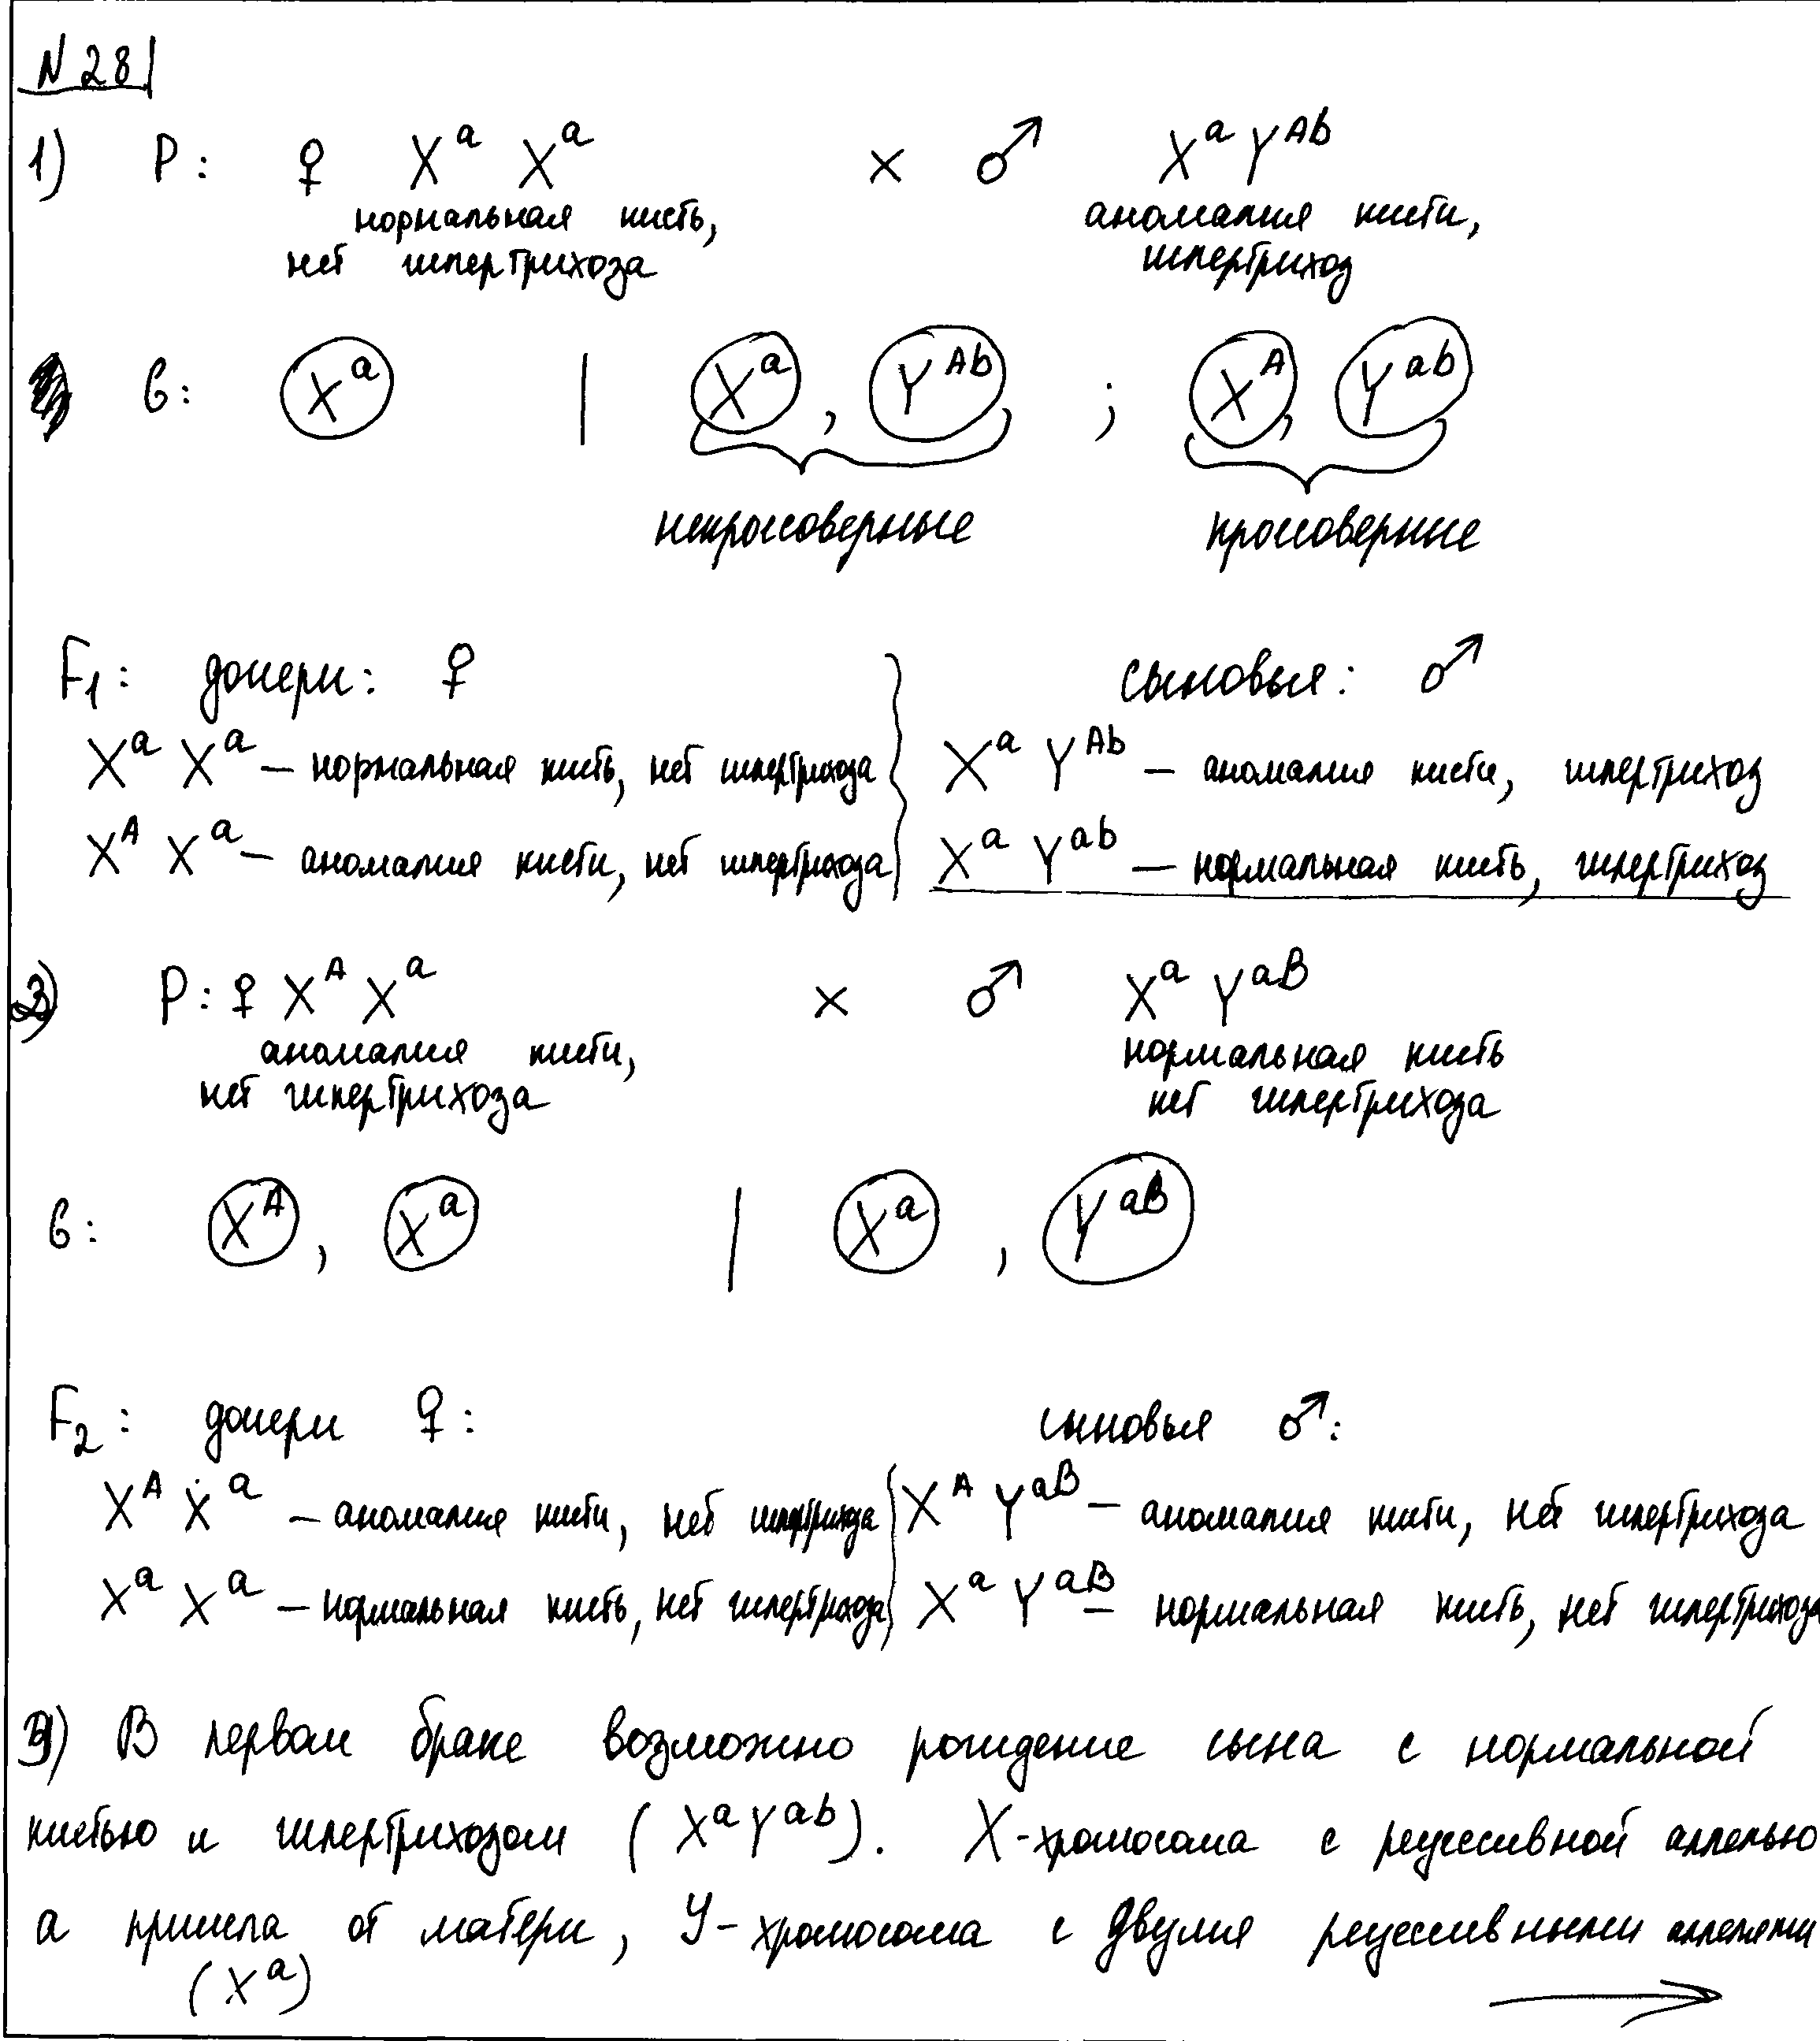 N28
1) P: ♀ Xᵃ Xᵃ × ♂ Xᵃ Yᴬᵇ
нормальная кисть, аномалия кисти,
нет гипертрихоза гипертрихоз
G: Xᵃ | Xᵃ, Yᴬᵇ ; Xᴬ, Yᵃᵇ
некроссоверные кроссоверные
F₁: дочери: ♀ сыновья: ♂
Xᵃ Xᵃ – нормальная кисть, нет гипертрихоза Xᵃ Yᴬᵇ – аномалия кисти, гипертрихоз
Xᴬ Xᵃ – аномалия кисти, нет гипертрихоза Xᵃ Yᵃᵇ – нормальная кисть, гипертрихоз
2) P: ♀ Xᴬ Xᵃ × ♂ Xᵃ Yᵃᴮ
аномалия кисти, нормальная кисть
нет гипертрихоза нет гипертрихоза
G: Xᴬ, Xᵃ | Xᵃ, Yᵃᴮ
F₂: дочери ♀: сыновья ♂:
Xᴬ Xᵃ – аномалия кисти, нет гипертрихоза Xᴬ Yᵃᴮ – аномалия кисти, нет гипертрихоза
Xᵃ Xᵃ – нормальная кисть, нет гипертрихоза Xᵃ Yᵃᴮ – нормальная кисть, нет гипертрихоза
3) В первом браке возможно рождение сына с нормальной
кистью и гипертрихозом (XᵃYᵃᵇ). X-хромосома с рецессивной аллелью
а пришла от матери, У-хромосома с двумя рецессивными аллелями
(Xᵃ)